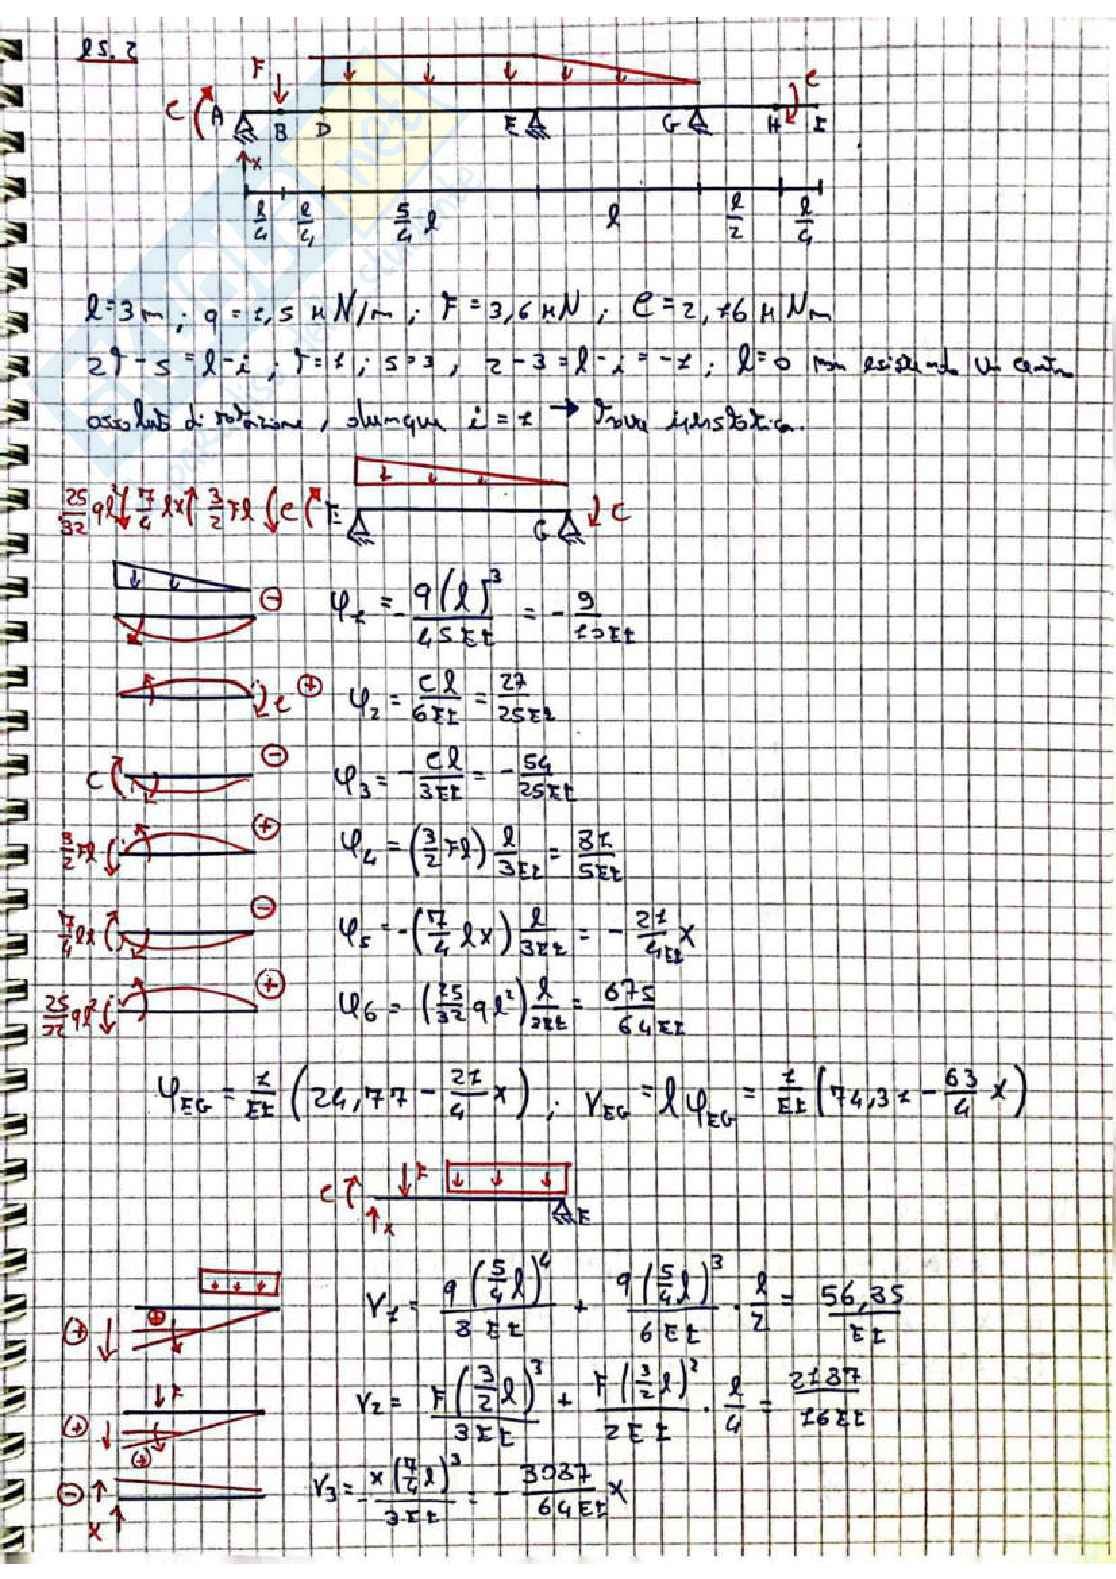 es. 2
F C
C A B D E G H I
x
l/4 l/4 5/4 l l l/2 l/4
l=3m; q=1,5 kN/m; F=3,6 kN; C=2,16 kNm
2t-s=l-i; t=1; s=3, 2-3=l-i=-1; l=0 non esistendo un centro
assoluto di rotazione, dunque i=1 → Trave iperstatica.
25/32 ql² 7/4 lx 3/2 Fl C E G C
⊖ φ1 = - q(l)³/45EI = - 9/10EI
C ⊕ φ2 = Cl/6EI = 27/25EI
C ⊖ φ3 = - Cl/3EI = - 54/25EI
3/2 Fl ⊕ φ4 = (3/2 Fl) l/3EI = 81/5EI
7/4 lx ⊖ φ5 = -(7/4 lx) l/3EI = - 21/4EI x
25/32 ql² ⊕ φ6 = (25/32 ql²) l/3EI = 675/64EI
φEG = 1/EI (24,77 - 21/4 x); vEG = lφEG = 1/EI (74,31 - 63/4 x)
C F x E
⊕ ⊕ v1 = q(5/4 l)⁴/8EI + q(5/4 l)³/6EI · l/2 = 56,35/EI
F ⊕ ⊕ v2 = F(3/2 l)³/3EI + F(3/2 l)²/2EI · l/4 = 2187/16EI
⊖ x v3 = - x(7/4 l)³/3EI = - 3087/64EI x